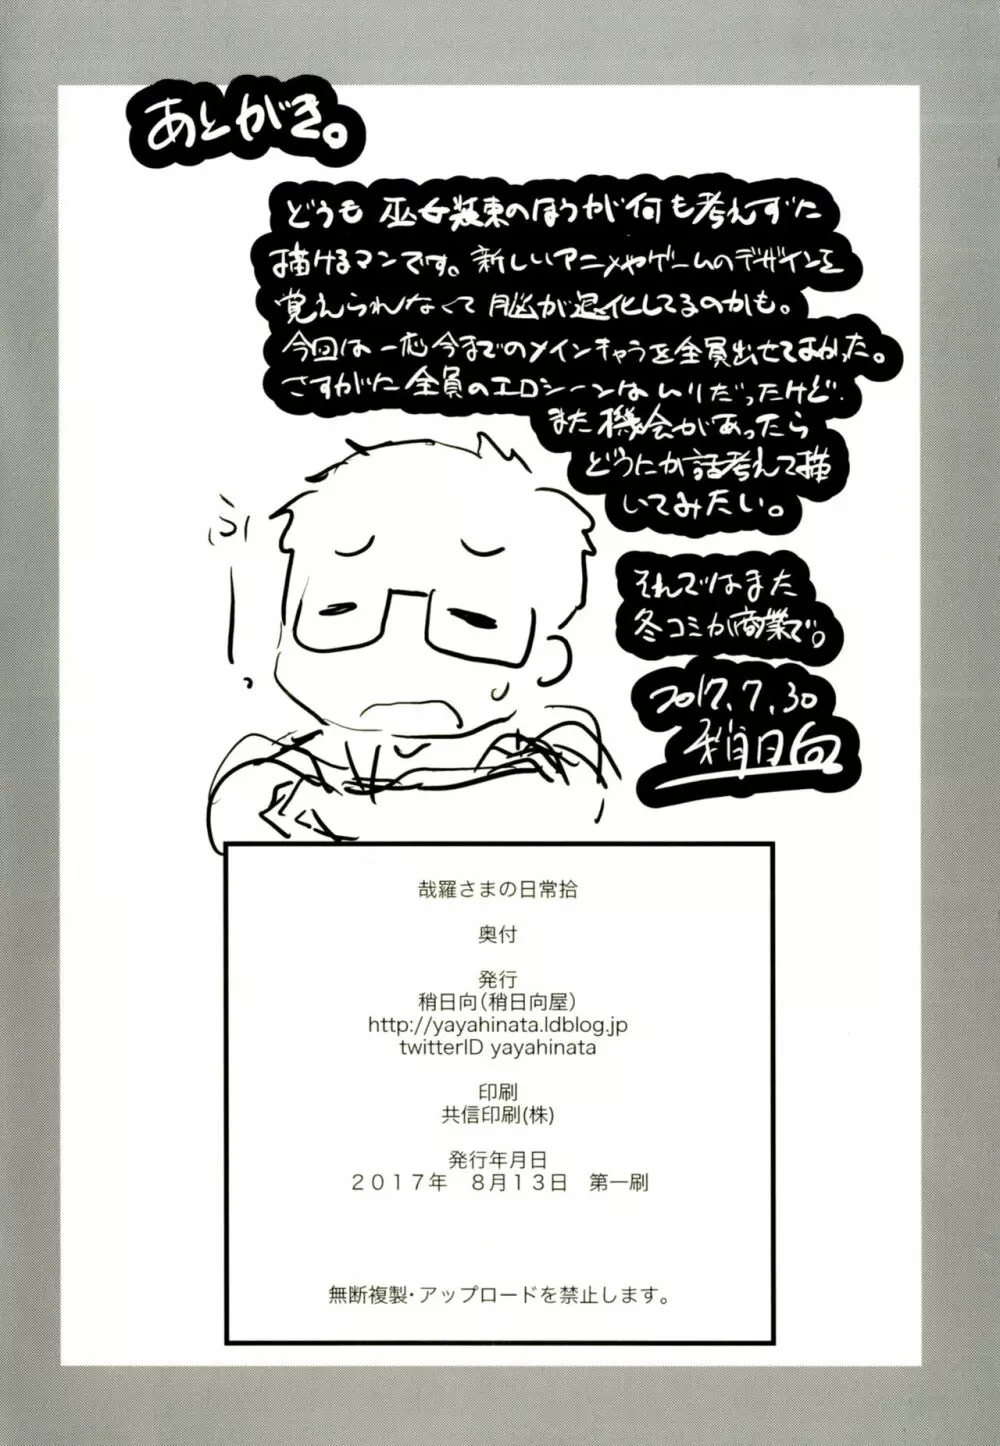 あとがき。
どうも 巫女装束のほうが何も考えずに
描けるマンです。新しいアニメやゲームのデザインを
覚えられなくて脳が退化してるのかも。
今回は一応今までのメインキャラを全員出せてよかった。
さすがに全員のエロシーンはムリだったけど
また機会があったら
どうにか話考えて描
いてみたい。
ふぅ
それではまた
冬コミか商業で。
2017.7.30
稍日向
哉羅さまの日常拾
奥付
発行
稍日向(稍日向屋)
http://yayahinata.ldblog.jp
twitterID yayahinata
印刷
共信印刷(株)
発行年月日
2017年 8月13日 第一刷
無断複製・アップロードを禁止します。